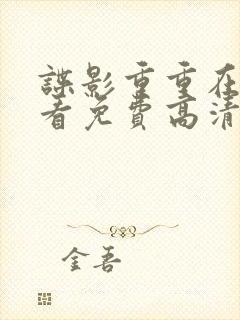 諜影重重在
看免費高清
金吾